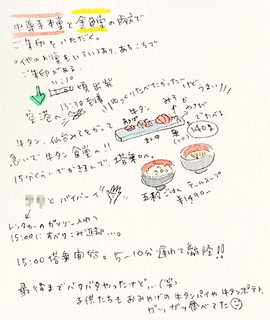 中尊寺本堂と金色堂の両方で
ご朱印をいただく。
他のお堂もいろいろあり、あちこちで
ご朱印がある。
11:30
頃出発
空港へ
13:30 到着
ゆっくりたべたかったけどうまい!!
牛タン
みそ
牛タン、仙台みそもかって
急いで牛タン食堂の!!
15分くらいでかきこんで、搭乗口へ。
140g
麦ごはん
テールスープ
¥1490-
とバイバーイ
レンタカーのガソリン入れて
15:00にすべりこみ返却…。
15:00搭乗開始。5~10分遅れて離陸!!
最後までバタバタやったけど…(笑)
子供たちもおみやげの牛タンパイや牛タンポテト、
ガツガツ食べてた